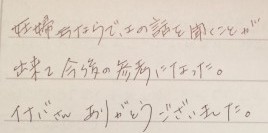 妊婦ならで、この話を聞くことが
出来て今後の参考になった。
ありがとうございました。